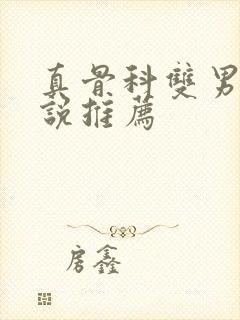 真骨科雙男
說推薦
房鑫